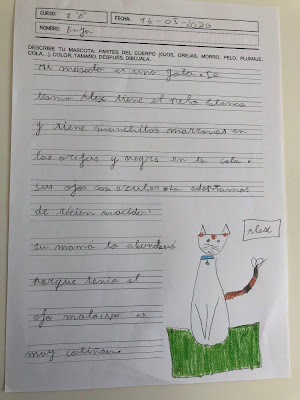 CURSO: 1º B
FECHA: 16-03-2020
NOMBRE: Enya
DESCRIBE TU MASCOTA: PARTES DEL CUERPO (OJOS, OREJAS, MORRO, PELO, PLUMAJE,
COLA...), COLOR, TAMAÑO. DESPUÉS, DIBÚJALA.
Mi mascota es una gata. Se
llama Alex tiene el pelo blanco
y tiene manchitas marrones en
las orejas y negras en la cola.
Sus ojos son azules. La adoptamos
de recién nacida.
su mama la abandonó
porque tenía el
ojo malo. es
muy cariñosa.
Alex